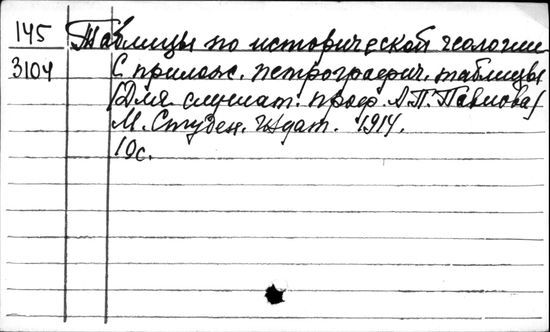 145 Таблицы по исторической геологии
3104 С прилож. петрографич. таблицы
(Для слушат. проф. А.П. Павлова)
М. Студен. Издат. 1914.
10с.